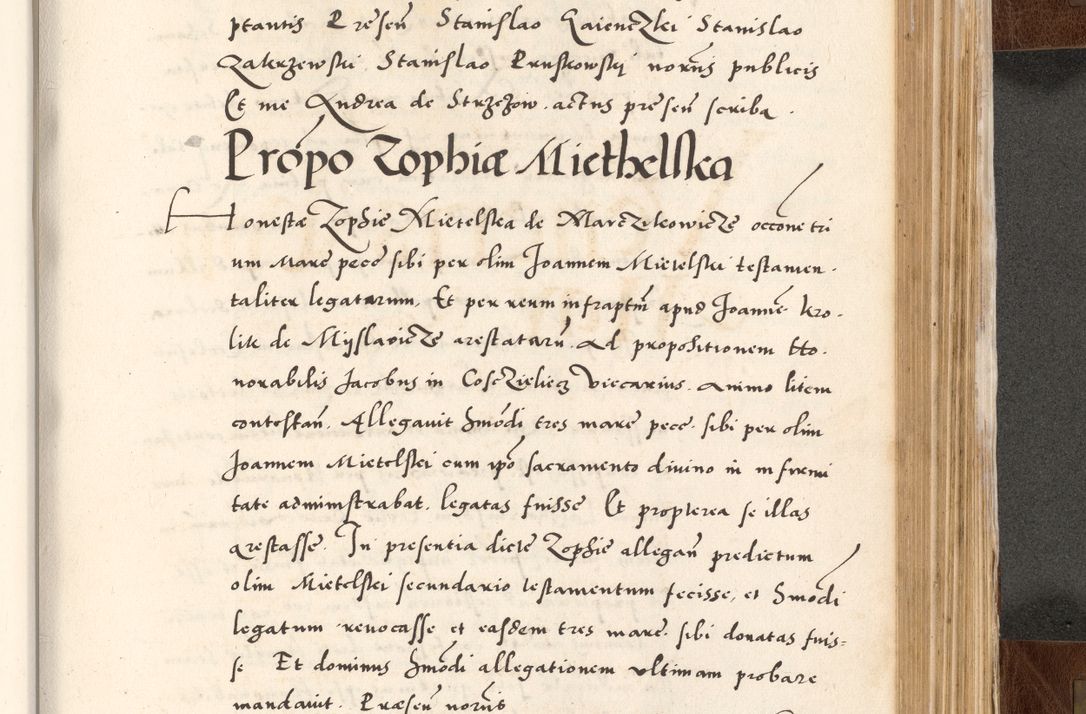 ptantis Presen̄ Stanislao Gaienczki Stanislao
Zakrzewski. Stanislao Pruskowski norūs publicis
Et me Andrea de Strzezow. actus presen̄ scriba.
Propō Zophiæ Miethelska
Honestæ Zophie Mietelska de Marczikowicze occōne tri
um Marc pece sibi per olim Joannem Mietelski testamen-
taliter legatarum, Et per reum infraptm̄ apud Joannē kro-
lik de Myslavicze arestatarū. Ad propositionem Ho-
norabilis Jacobus in Cosczieliecz Viccarius. animo litem
contestan̄. Allegavit Smōdi tres marc pece. sibi per olim
Joannem Mietelski cum ipō sacramento divino in infirmi
tate administrabat. legatas fuisse Et propterea se illas
arestasse. In presentia dicte Zophie allegan̄ predictum
olim Mietelski secundario testamentum fecisse, et Smōdi
legatum revocasse et easdem tres marc. sibi donatas fuis-
se Et dominus Smōdi allegationem ultimam probare
mandavit. Præsen̄ norūs